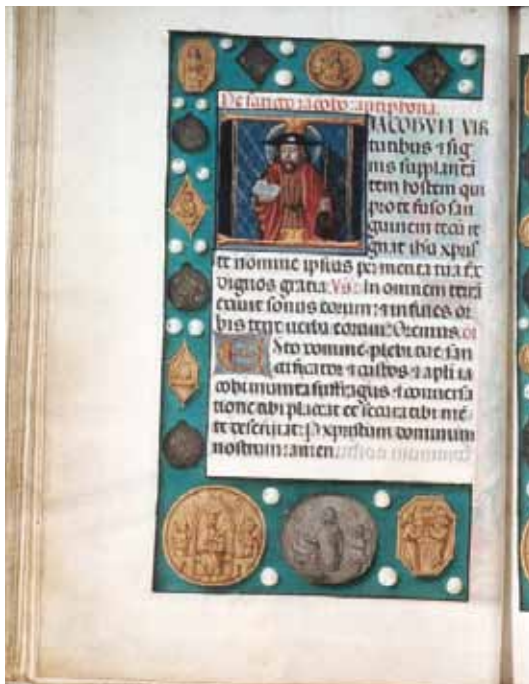 De sancto iacobo: antiphona.
IACOBVM VIR
tutibus ⁊ sig
nis supplantā
tem hostem qui
pro te fuso san
guinem
ihū xp̄us
te nomine ipsius per merita tua
dignos gratia Vs: In omnem terrā
exiuit sonus eorum: ⁊ in fines or
bis terre uerba eorum: Oremus. or
Esto domine plebi tue san
ctificator ⁊ custos ⁊ apłi ia
cobi munita suffragiis ⁊ conuersa
tione tibi placeat et secura tibi mē
te deseruiat: P xpistum dominum
nostrum: amen.